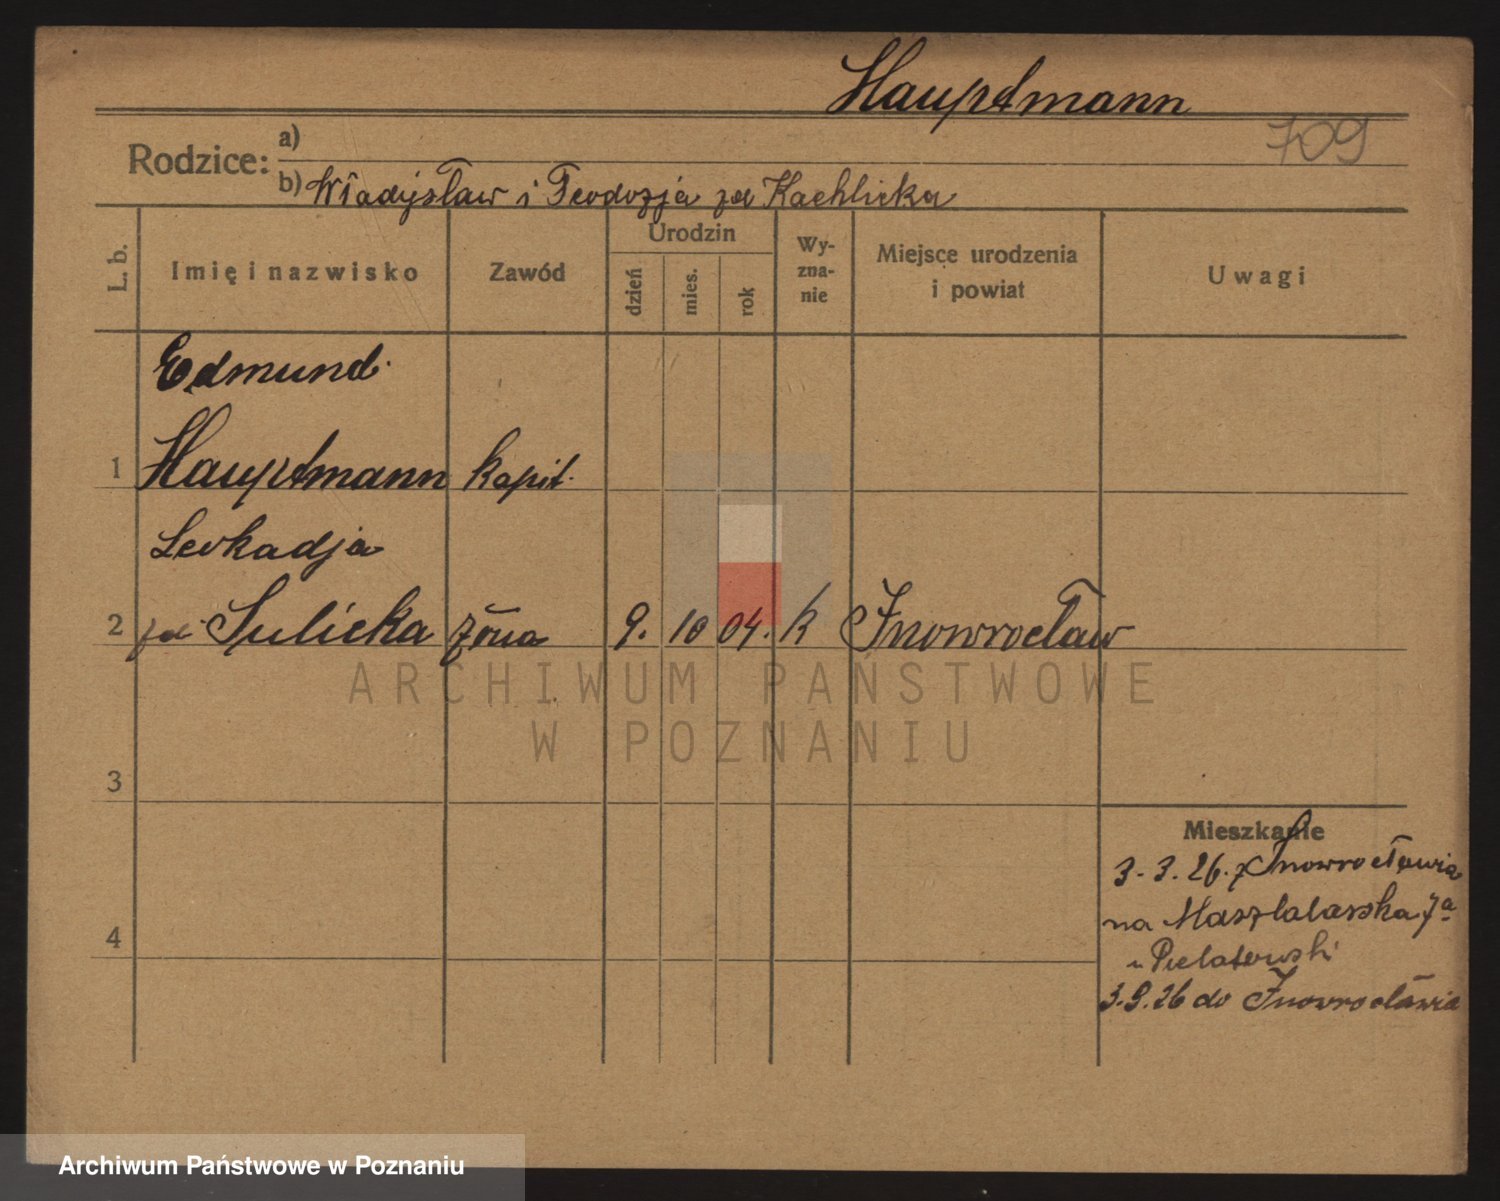 Hauptmann
709
Rodzice: a)
b) Władysław i Teodozja zd Kachlicka
L. b.
Imię i nazwisko
Zawód
Urodzin
dzień
mies.
rok
Wy-
zna-
nie
Miejsce urodzenia
i powiat
Uwagi
Edmund
1 Hauptmann kapit.
Leokadja
2 zd. Sulicka żona 9. 10 04. k Inowrocław
ARCHIWUM PAŃSTWOWE
W POZNANIU
3
Mieszkanie
3. 3. 26. z Inowrocławia
na Masztalarska 7a
4
u Pielatowski
3. 9. 26 do Inowrocławia
Archiwum Państwowe w Poznaniu